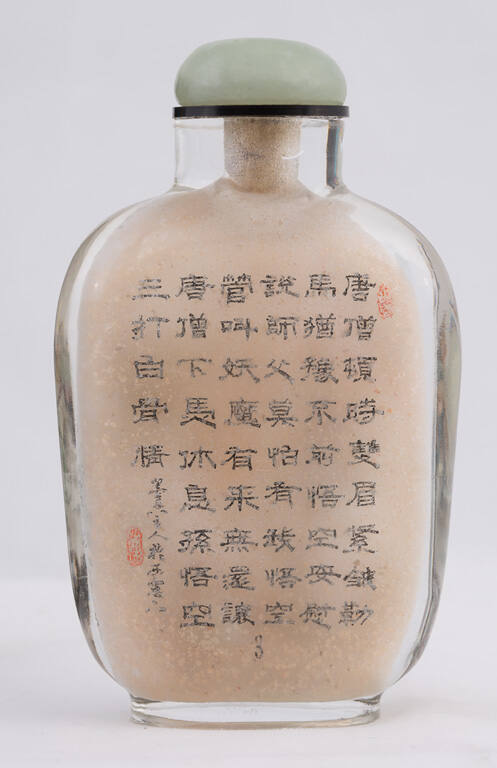 唐僧頓時雙眉緊鎖勒
馬猶豫不前悟空安慰
說師父莫怕有我悟空
管叫妖魔有来無還讓
唐僧下馬休息孫悟空
三打白骨精
3